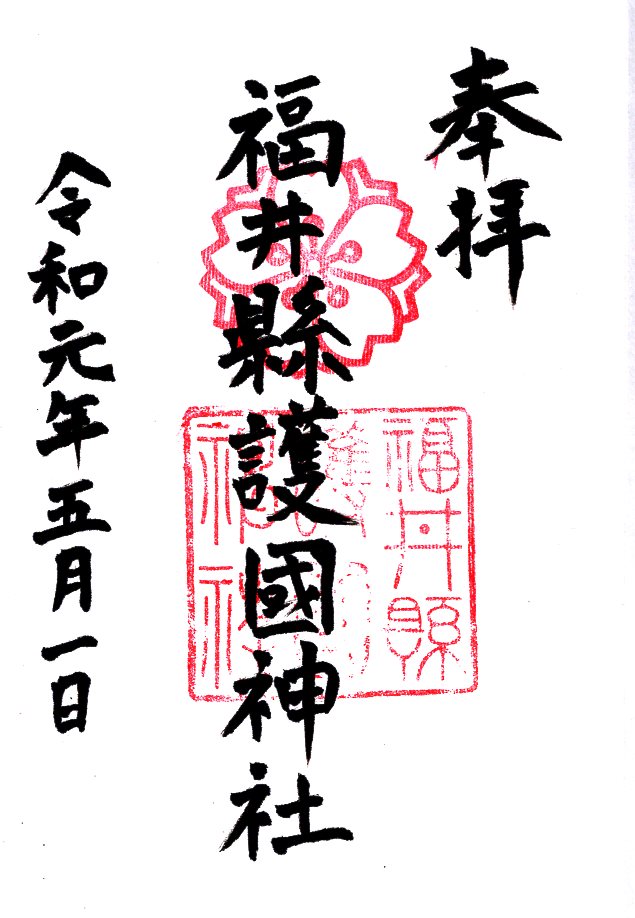 奉拝
福井縣護國神社
福井縣
神社
令和元年五月一日